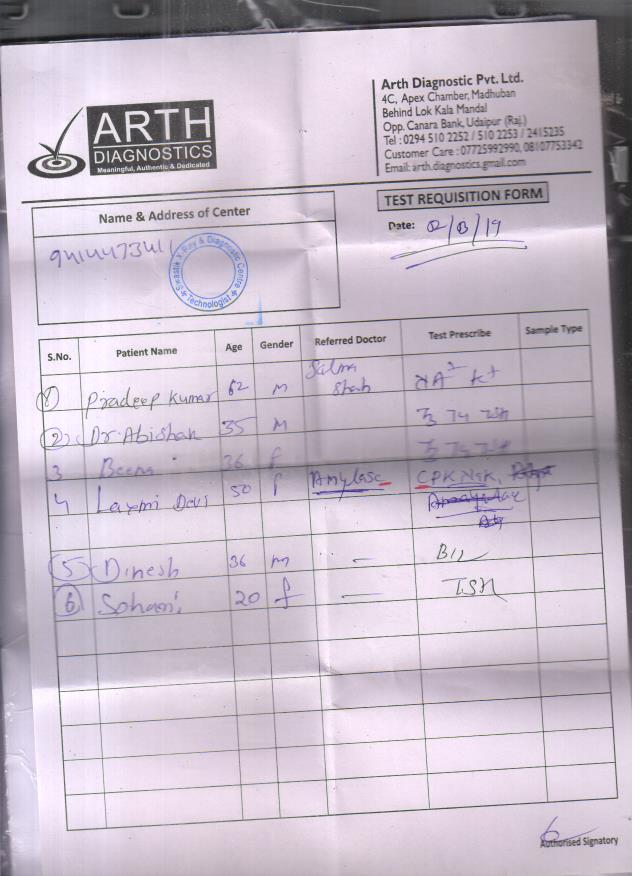 ARTH
DIAGNOSTICS
Meaningful, Authentic & Dedicated
Arth Diagnostic Pvt. Ltd.
4C, Apex Chamber, Madhuban
Behind Lok Kala Mandal
Opp. Canara Bank, Udaipur (Raj.)
Tel : 0294 510 2252 / 510 2253 / 2415235
Customer Care : 07725992990, 08107753342
Email: arth.diagnostics.gmail.com
TEST REQUISITION FORM
Name & Address of Center
Date:
9414473411
Swastik X-Ray & Diagnostic Centre
Technologist
S.No. Patient Name Age Gender Referred Doctor Test Prescribe Sample Type
1 Pradeep Kumar 62 M Salma Shah K+
2 Dr. Abishah 35 M
3 Beena 36 f
4 Laxmi Devi 50 f Amylase CPK
5 Dinesh 36 m —
6 Sohani 20 f — TSH
Authorised Signatory